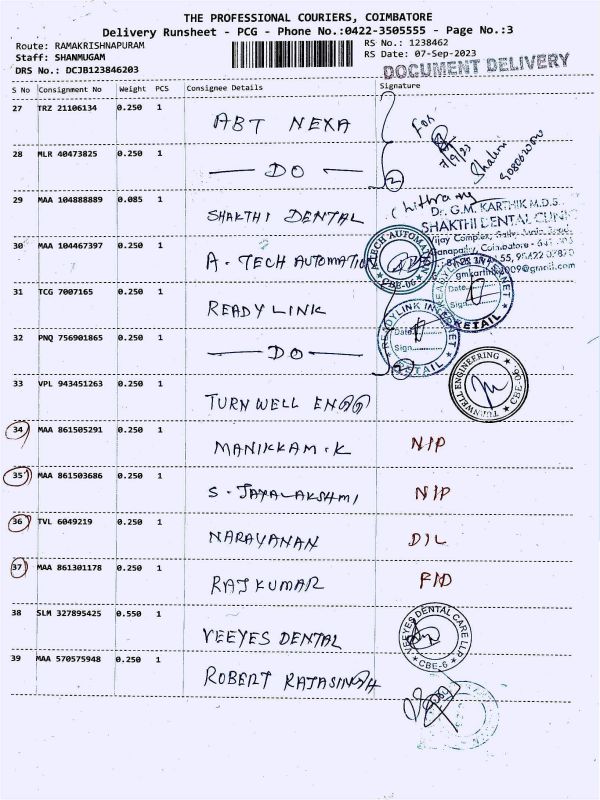 THE PROFESSIONAL COURIERS, COIMBATORE
Delivery Runsheet - PCG - Phone No.:0422-3505555 - Page No.:3
Route: RAMAKRISHNAPURAM
Staff: SHANMUGAM
DRS No.: DCJB123846203
RS No.: 1238462
RS Date: 07-Sep-2023
DOCUMENT DELIVERY
S No Consignment No Weight PCS Consignee Details Signature
27 TRZ 21106134 0.250 1 ABT NEXA
For
7/9/23
Shalini
28 MLR 40473825 0.250 1 DO 2
29 MAA 104888889 0.085 1 SHAKTHI DENTAL
Dr. G.M. KARTHIK M.D.S.
SHAKTHI DENTAL CLINIC
Vijay Complex,
Ganapathy, Coimbatore -
30 MAA 104467397 0.250 1 A. TECH AUTOMATION
A TECH AUTOMATION
CBE-06
31 TCG 7007165 0.250 1 READYLINK
READYLINK INTERNET
Date
Sign
RETAIL
32 PNQ 756901865 0.250 1 DO 2
READYLINK INTERNET
Date
Sign
RETAIL
33 VPL 943451263 0.250 1 TURNWELL ENGG
TURNWELL ENGINEERING
CBE-06
34 MAA 861505291 0.250 1 MANIKKAM.K N/P
35 MAA 861503686 0.250 1 S. JAYALAKSHMI N/P
36 TVL 6049219 0.250 1 NARAYANAN D/L
37 MAA 861301178 0.250 1 RAJKUMAR F/D
38 SLM 327895425 0.550 1 VEEYES DENTAL
VEEYES DENTAL CARE LLP
CBE-6
39 MAA 570575948 0.250 1 ROBERT RAJASINGH